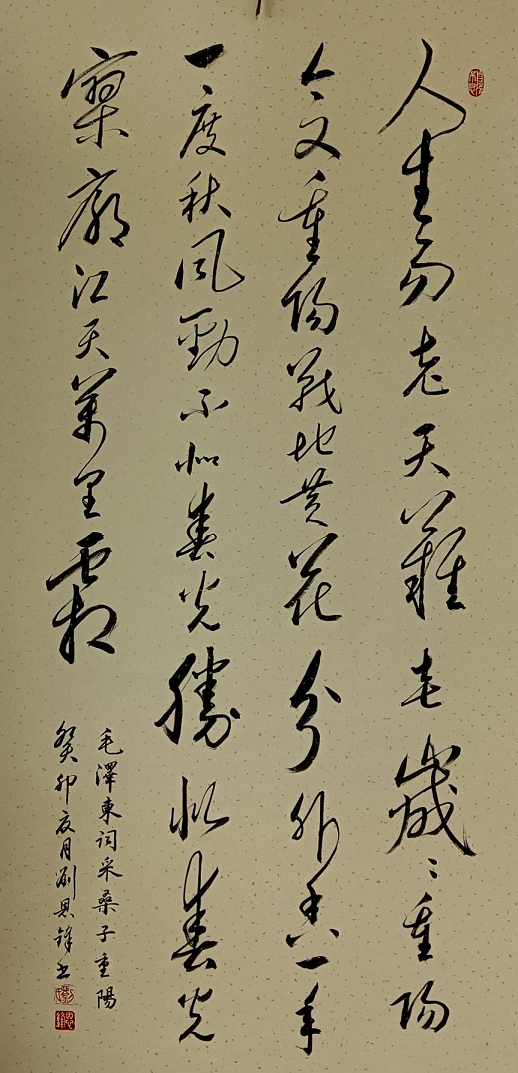 人生易老天難老歲〻重陽
今又重陽戰地黄花分外香一年
一度秋風勁不似春光勝似春光
寥廓江天萬里霜
毛澤東詞采桑子重陽
癸卯夏月劉恩鋒書